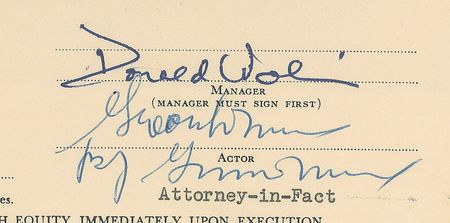 Donald Wolin
MANAGER
(MANAGER MUST SIGN FIRST)
by
ACTOR
Attorney-in-Fact
es.
H EQUITY IMMEDIATELY UPON EXECUTION